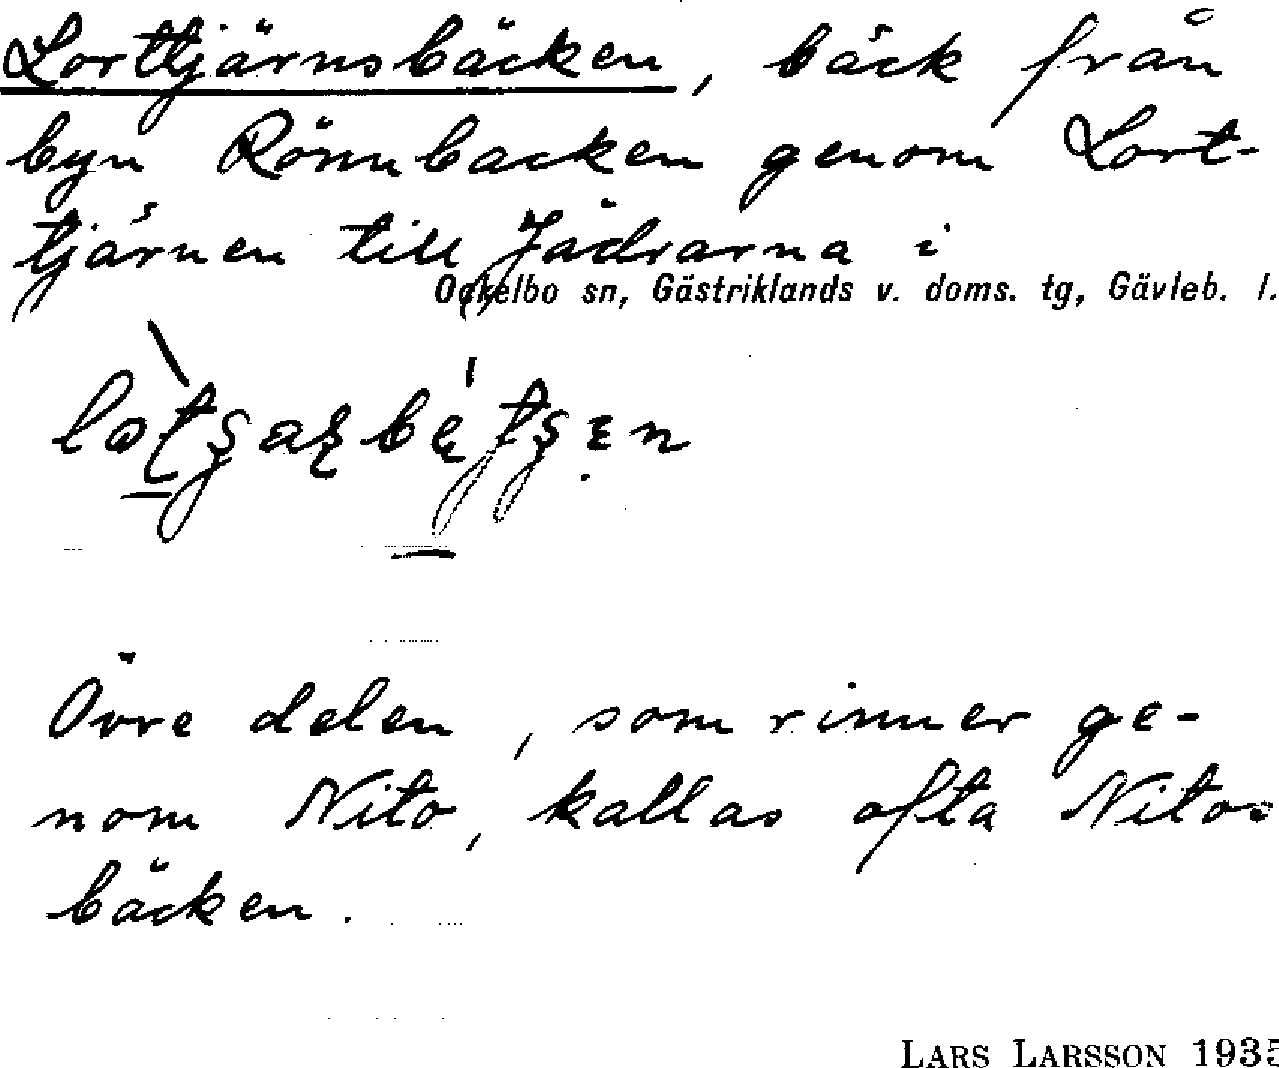 Lorttjärnsbäcken, bäck från
byn Rönnbacken genom Lort-
tjärnen till Jädrarna i
Ockelbo sn, Gästriklands v. doms. tg, Gävleb. l.
Övre delen, som rinner ge-
nom Nito, kallas ofta Nitos
bäcken.
LARS LARSSON 1935